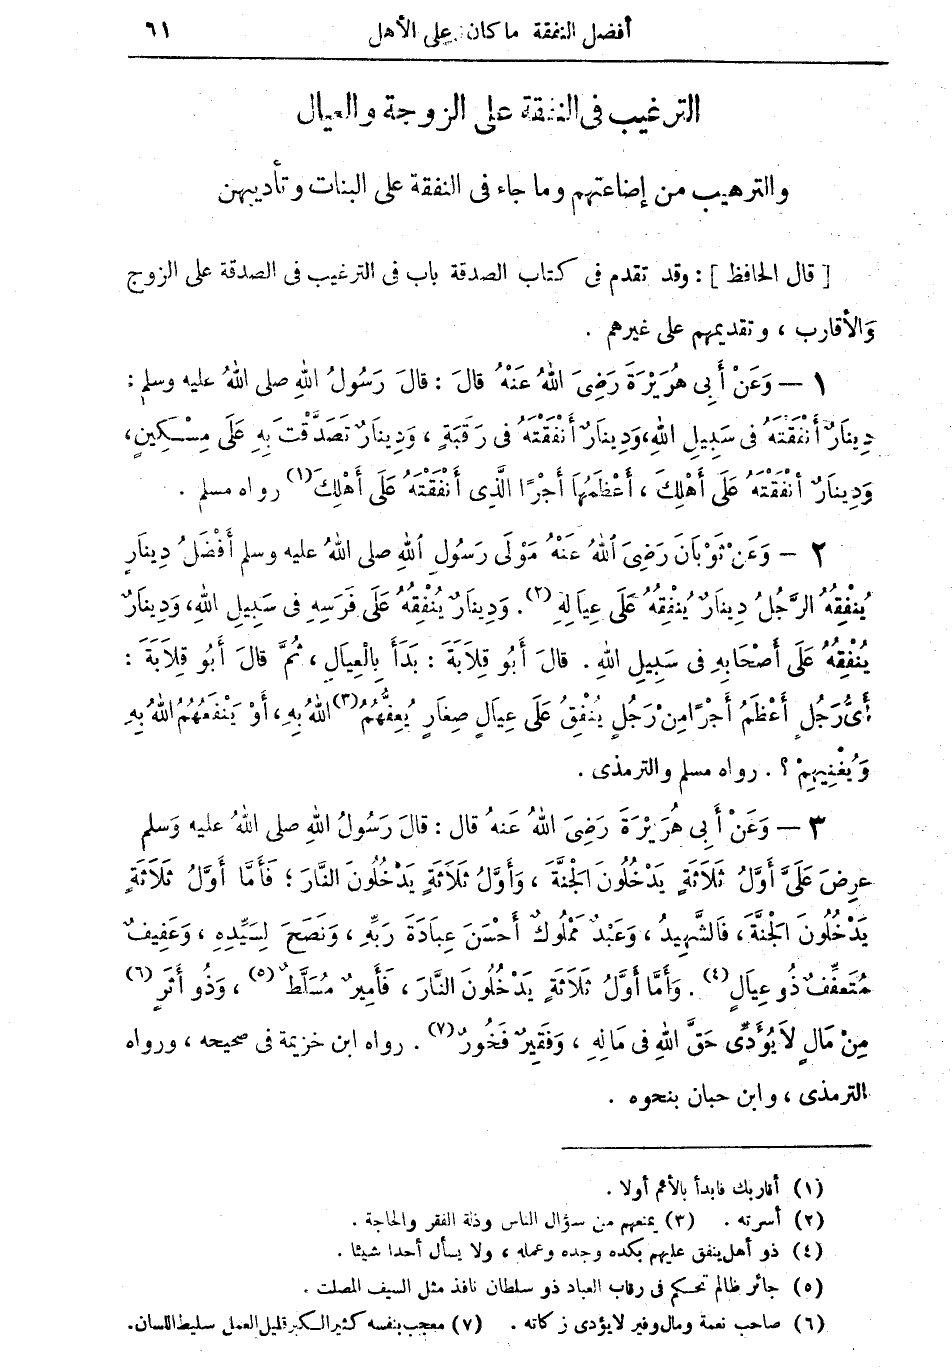 أفضل النفقة ما كان على الأهل ٦١
الترغيب فى النفقة على الزوجة والعيال
والترهيب من إضاعتهم وما جاء فى النفقة على البنات وتأديبهن
[ قال الحافظ ] : وقد تقدم فى كتاب الصدقة باب فى الترغيب فى الصدقة على الزوج
وَالأقارب ، وتقديمهم على غيرهم .
١ — وَعَنْ أَبِى هُرَيْرَةَ رَضِىَ اللهُ عَنْهُ قَالَ : قَالَ رَسُولُ اللهِ صلى اللهُ عليه وسلم :
دِينَارٌ أَنْفَقْتَهُ فى سَبِيلِ اللهِ، وَدِينَارٌ أَنْفَقْتَهُ فى رَقَبَةٍ ، وَدِينَارٌ تَصَدَّقْتَ بِهِ عَلَى مِسْكِينٍ،
وَدِينَارٌ أَنْفَقْتَهُ عَلَى أَهْلِكَ ، أَعْظَمُهَا أَجْرًا الَّذِى أَنْفَقْتَهُ عَلَى أَهْلِكَ (١) رواه مسلم .
٢ — وَعَنْ ثَوْبَانَ رَضِىَ اللهُ عَنْهُ مَوْلَى رَسُولِ اللهِ صلى اللهُ عليه وسلم أَفْضَلُ دِينَارٍ
يُنفِقُهُ الرَّجُلُ دِينَارٌ يُنْفِقُهُ عَلَى عِيَالِهِ (٢). وَدِينَارٌ يُنْفِقُهُ عَلَى فَرَسِهِ فى سَبِيلِ اللهِ، وَدِينَارٌ
يُنْفِقُهُ عَلَى أَصْحَابِهِ فى سَبِيلِ اللهِ . قَالَ أَبُو قِلَابَةَ : بَدَأَ بِالْعِيَالِ ، ثُمَّ قَالَ أَبُو قِلَابَةَ :
أَىُّ رَجُلٍ أَعْظَمُ أَجْرًا مِنْ رَجُلٍ يُنْفِقُ عَلَى عِيَالٍ صِغَارٍ يُعِفُّهُمُ (٣) اللهُ بِهِ، أَوْ يَنْفَعُهُمُ اللهُ بِهِ
وَيُغْنِيهِمْ ؟ . رواه مسلم والترمذى .
٣ — وَعَنْ أَبِى هُرَيْرَةَ رَضِىَ اللهُ عَنهُ قال : قَالَ رَسُولُ اللهِ صلى اللهُ عليه وَسلم
عرِضَ عَلَىَّ أَوَّلُ ثَلَاثَةٍ يَدْخُلُونَ الْجَنَّةَ ، وَأَوَّلُ ثَلَاثَةٍ يَدْخُلُونَ النَّارَ ؛ فَأَمَّا أَوَّلُ ثَلَاثَةٍ
يَدْخُلُونَ الْجَنَّةَ ، فَالشَّهِيدُ ، وَعَبْدٌ مَمْلُوكٌ أَحْسَنَ عِبَادَةَ رَبِّهِ ، وَنَصَحَ لِسَيِّدِهِ ، وَعَفِيفٌ
مُتَعَفِّفٌ ذُو عِيَالٍ (٤) . وَأَمَّا أَوَّلُ ثَلَاثَةٍ يَدْخُلُونَ النَّارَ ، فَأَمِيرٌ مُسَلَّطٌ (٥) ، وَذُو أَثَرٍ (٦)
مِنْ مَالٍ لَا يُؤَدِّى حَقَّ اللهِ فى مَالِهِ ، وَفَقِيرٌ فَخُورٌ (٧) . رواه ابن خزيمة فى صحيحه ، ورواه
الترمذى ، وابن حبان بنحوه .
(١) أقاربك فابدأ بالأهم أولا .
(٢) أسرته . (٣) يمنعهم من سؤال الناس وذلة الفقر والحاجة .
(٤) ذو أهل ينفق عليهم بكده وجده وعمله ، ولا يسأل أحدا شيئا .
(٥) جائر ظالم تحكم فى رقاب العباد ذو سلطان نافذ مثل السيف المصلت .
(٦) صاحب نعمة ومال وفير لا يؤدى زكاته . (٧) معجب بنفسه كثير الكبر قليل العمل سليط اللسان.